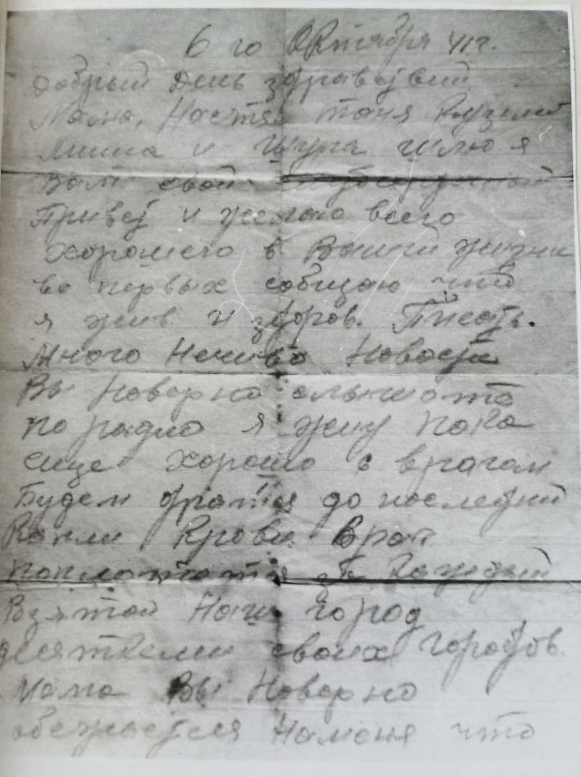 6 го Октября 41г.
Добрый день здравствуй
Мама, Настя Таня
Миша и Шура шлю я
Вам свой
Привет и желаю всего
хорошего в Вашей жизни
во первых собщаю что
я жив и здоров. Писать
Много Нечиво Новости
Вы Наверно
по радио я живу пока
еще хорошо с врагом
будем до последний
Капли Крови Враг
за Каждый
Взятой Наш город
десятками своих городов.
Мама Вы Наверно
что